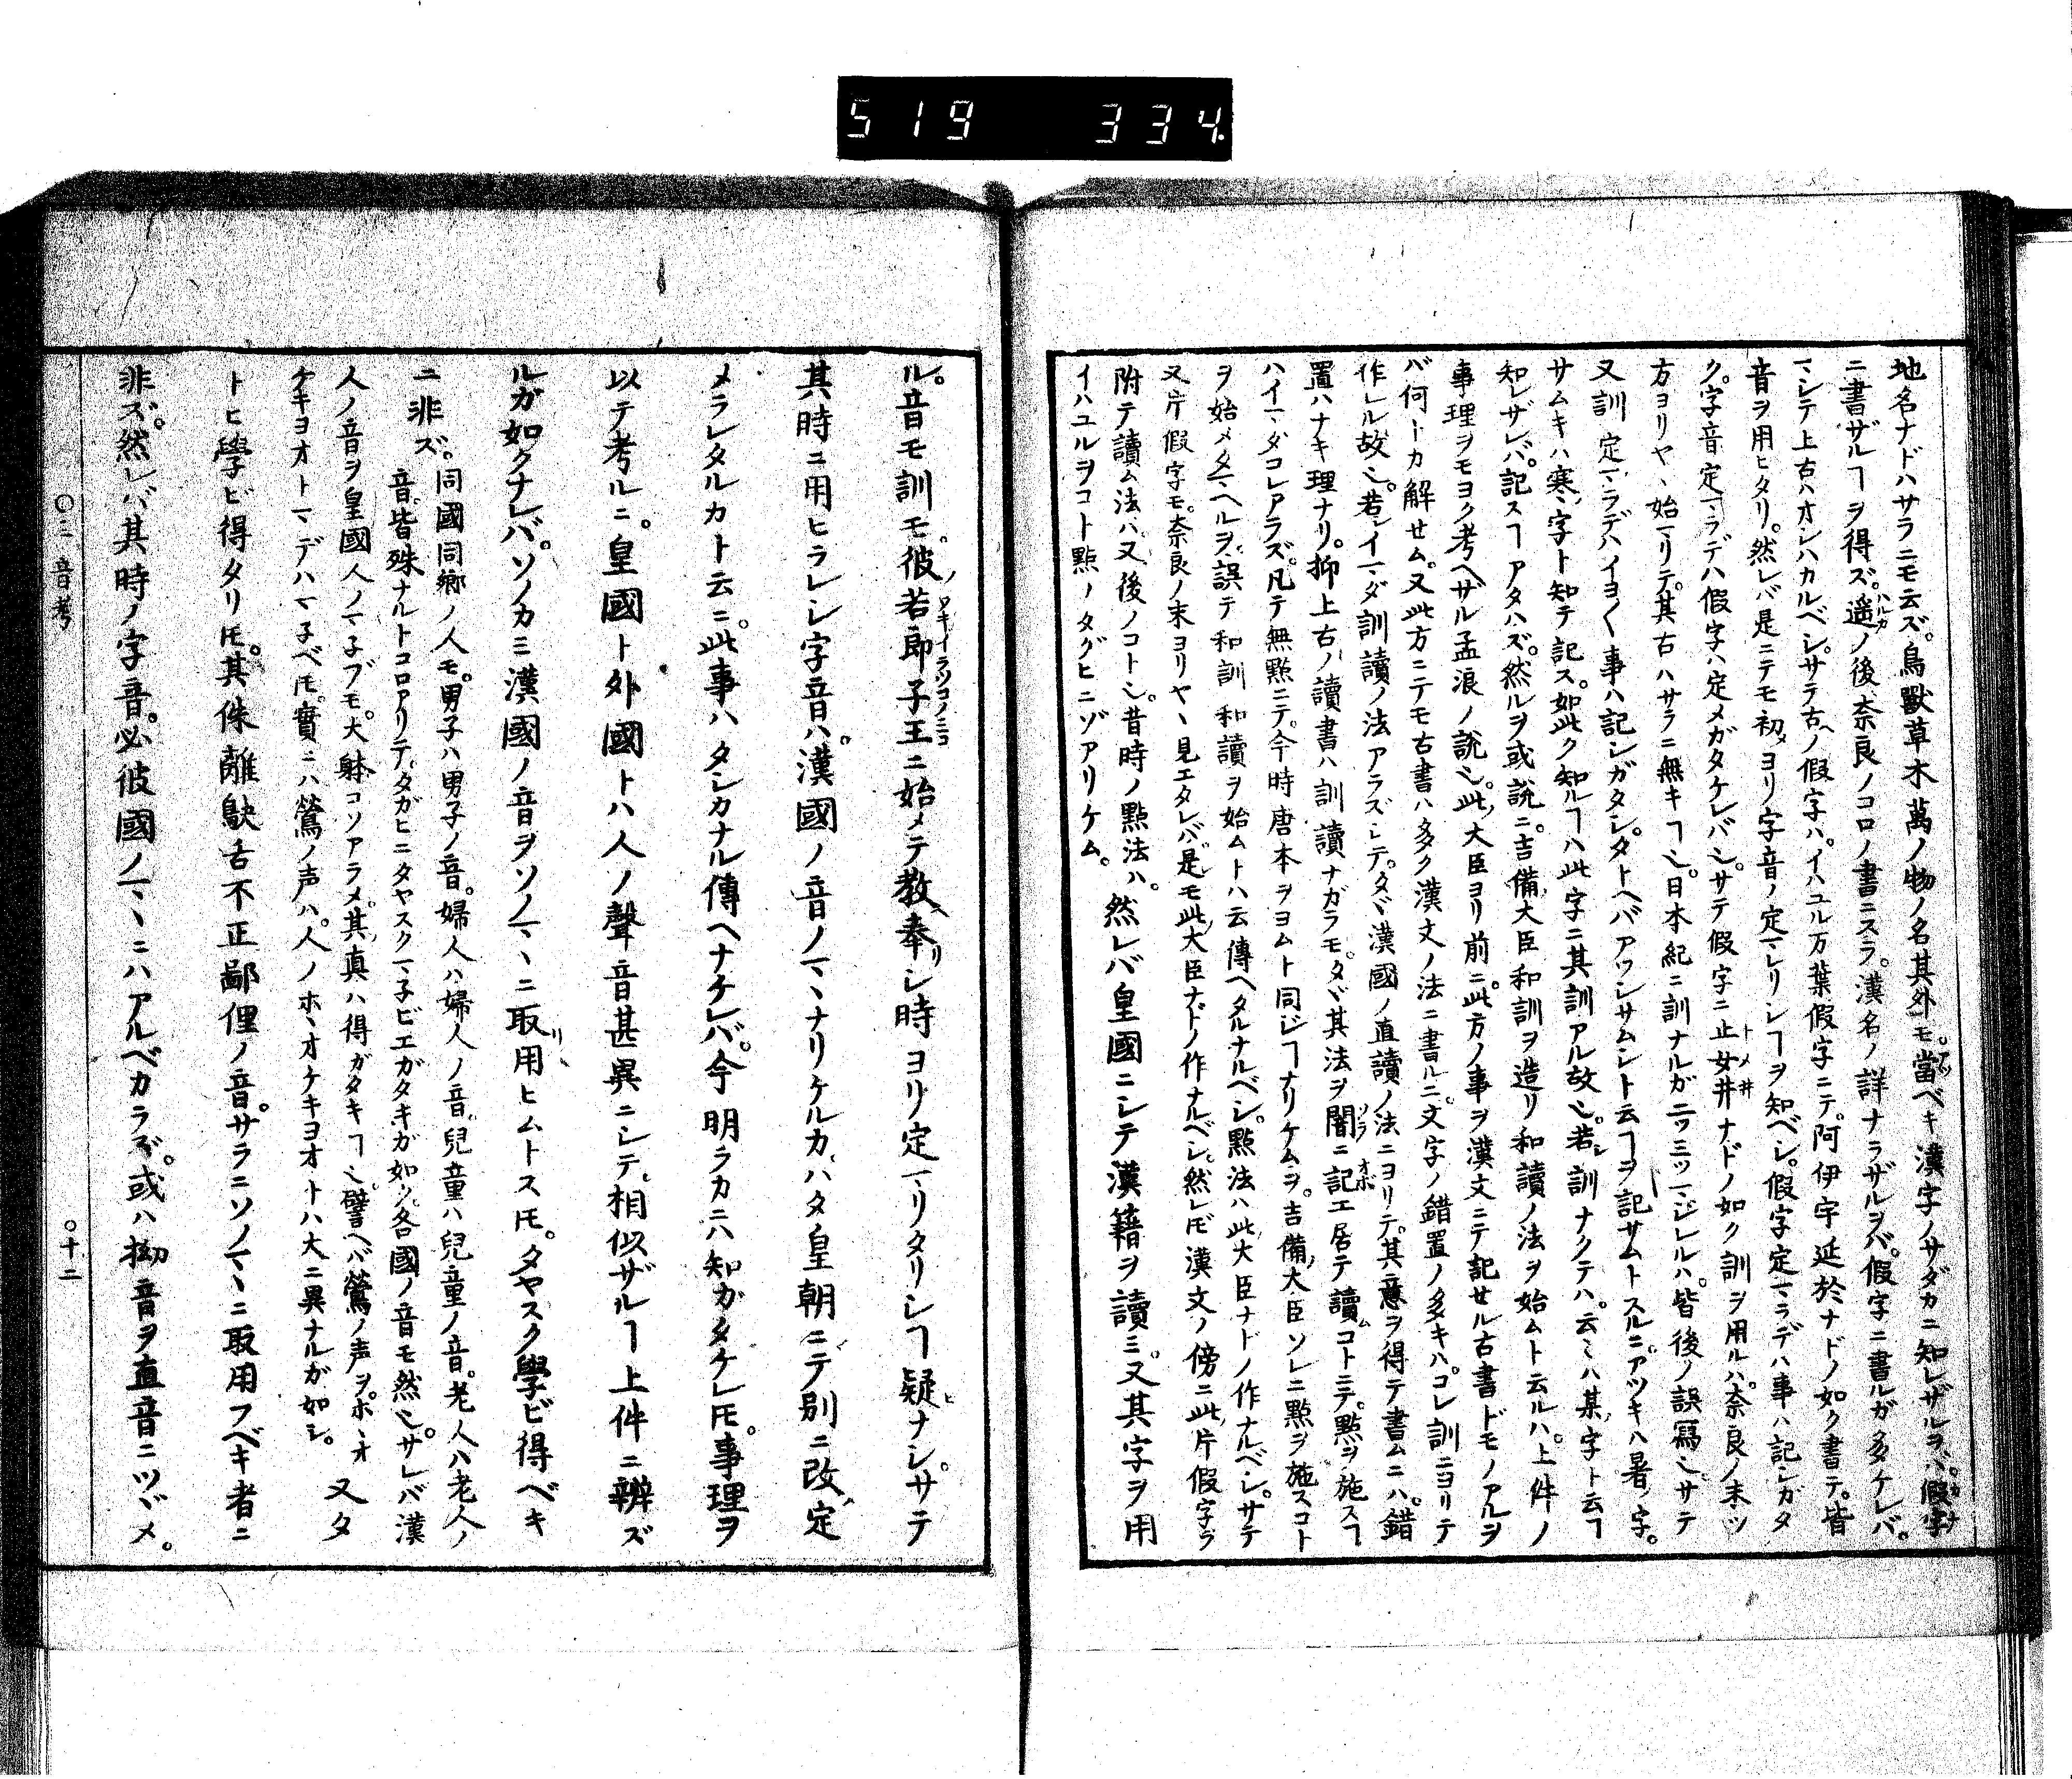 519 334
地名ナドハサラニモ云ズ。鳥獸草木萬ノ物ノ名其外モ。當ベキ漢字ノサダカニ知レザルヲバ。假字
ニ書ザルヿヲ得ズ。遥ノ後奈良ノコロノ書ニスラ。漢名ノ詳ナラザルヲバ。假字ニ書ルガ多ケレバ。
マシテ上古ハオシハカルベシ。サテ古ヘノ假字ハ。イハユル万葉假字ニテ。阿伊宇延於ナドノ如ク書テ。皆
音ヲ用ヒタリ。然レバ是ニテモ初メヨリ字音ノ定マレリシヿヲ知ベシ。假字定マラデハ事ハ記シガタ
ク。字音定マラデハ假字ハ定メガタケレバ也。サテ假字ニ止女井ナドノ如ク訓ヲ用ルハ。奈良ノ末ツ
方ヨリヤヽ始マリテ。其古ハサラニ無キヿ也。日本紀ニ訓ナルガ二ツ三ツマジレルハ。皆後ノ誤寫也。サテ
又訓定マラデハイヨ〱事ハ記シガタシ。タトヘバアツシサムシト云ヿヲ記サムトスルニ。アツキハ暑ノ字。
サムキハ寒ノ字ト知テ記ス。如此ク知ルヿハ此字ニ其訓アル故也。若シ訓ナクテハ。云々ハ某ノ字ト云ヿ
知レザレバ。記スヿアタハズ。然ルヲ或説ニ。吉備ノ大臣和訓ヲ造リ和讀ノ法ヲ始ムト云ルハ。上件ノ
事理ヲモヨク考ヘザル孟浪ノ説也。此ノ大臣ヨリ前ニ。此方ノ事ヲ漢文ニテ記セル古書ドモノアルヲ
バ何トカ解セム。又此方ニテモ古書ハ多ク漢文ノ法ニ書ルニ。文字ノ錯置ノ多キハ。コレ訓ニヨリテ
作レル故也。若シイマダ訓讀ノ法アラズシテ。タヾ漢國ノ直讀ノ法ニヨリテ。其意ヲ得テ書ムニハ。錯
置ハナキ理ナリ。抑上古ノ讀書ハ訓讀ナガラモ。タヾ其法ヲ闇ニ記エ居テ讀ムコトニテ。點ヲ施スヿ
ハイマダコレアラズ。凡テ無點ニテ。今時唐本ヲヨムト同ジヿナリケムヲ。吉備ノ大臣ソレニ點ヲ施スコト
ヲ始メタマヘルヲ。誤テ和訓和讀ヲ始ムトハ云傳ヘタルナルベシ。點法ハ此ノ大臣ナドノ作ナルベシ。サテ
又片假字モ。奈良ノ末ヨリヤヽ見エタレバ。是モ此ノ大臣ナドノ作ナルベシ。然レ𪜈漢文ノ傍ニ此ノ片假字ヲ
附テ讀ム法ハ。又後ノコト也。昔時ノ點法ハ。然レバ皇國ニシテ漢籍ヲ讀ミ。又其字ヲ用
イハユルヲコト點ノタグヒニゾアリケム。
ル。音モ訓モ。彼ノ若郎子王ニ始メテ教ヘ奉リシ時ヨリ定マリタリシヿ疑ヒナシ。サテ
其時ニ用ヒラレシ字音ハ。漢國ノ音ノマヽナリケルカ。ハタ皇朝ニテ別ニ改メ定
メラレタルカト云ニ。此事ハタシカナル傳ヘナケレバ。今明ラカニハ知ガタケレ𪜈。事理ヲ
以テ考ルニ。皇國ト外國トハ人ノ聲音甚異ニシテ。相似ザルヿ上件ニ辨ズ
ルガ如クナレバ。ソノカミ漢國ノ音ヲソノマヽニ取リ用ヒムトス𪜈。タヤスク學ビ得ベキ
ニ非ズ。同國同郷ノ人モ。男子ハ男子ノ音。婦人ハ婦人ノ音。兒童ハ兒童ノ音。老人ハ老人ノ
音。皆殊ナルトコロアリテ。タガヒニタヤスクマ子ビエガタキガ如ク。各國ノ音モ然也。サレバ漢
人ノ音ヲ皇國人ノマ子ブモ。大躰コソアラメ。其真ハ得ガタキヿ也。譬ヘバ鶯ノ声ヲ。ホヽオ
ケキヨオトマデハマ子ベ𪜈。實ニハ鶯ノ声ハ。人ノホヽオケキヨオトハ大ニ異ナルガ如シ。又タ
トヒ學ビ得タリ𪜈。其侏離鴃舌不正鄙俚ノ音。サラニソノマヽニ取用フベキ者ニ
非ズ。然レバ其時ノ字音。必彼國ノマヽニハアルベカラズ。或ハ拗音ヲ直音ニツヾメ。
〇三音考
〇十二